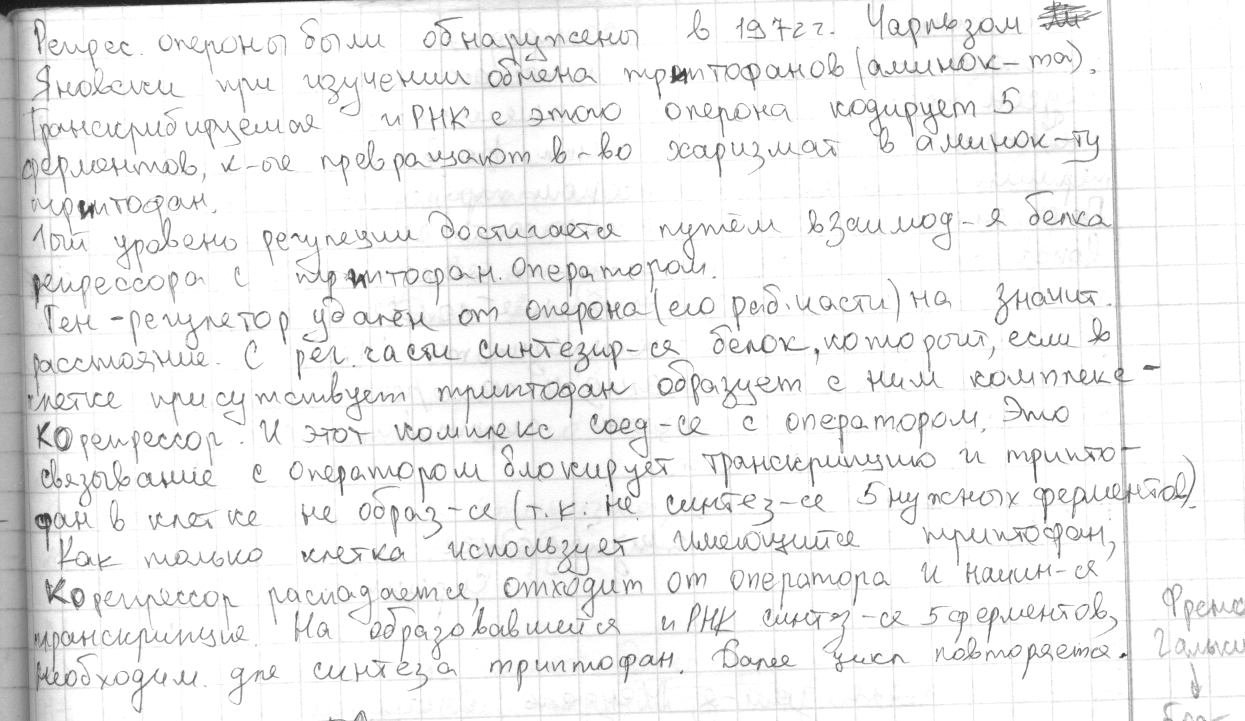 Репрес. опероны были обнаружены в 1972г. Чарльзом
Яновски при изучении обмена триптофанов (аминок-та).
Транскрибируемая иРНК с этого оперона кодирует 5
ферментов, к-ые превращают в-во харизмат в аминок-ту
триптофан.
1ый уровень регуляции достигается путём взаимод-я белка
репрессора с триптофан. оператором.
Ген-регулятор удален от оперона (его раб. части) на значит.
расстояние. С рег. части синтезир-ся белок, который, если в
клетке присутствует триптофан образует с ним комплекс-
корепрессор. И этот комплекс соед-ся с оператором. Это
связывание с оператором блокирует транскрипцию и трипто-
фан в клетке не образ-ся (т.к. не синтез-ся 5 нужных ферментов).
Как только клетка использует имеющийся триптофан,
корепрессор распадается, отходит от оператора и начин-ся
транскрипция. На образовавшейся иРНК синтез-ся 5 ферментов,
необходим. для синтеза триптофан. Далее цикл повторяется.